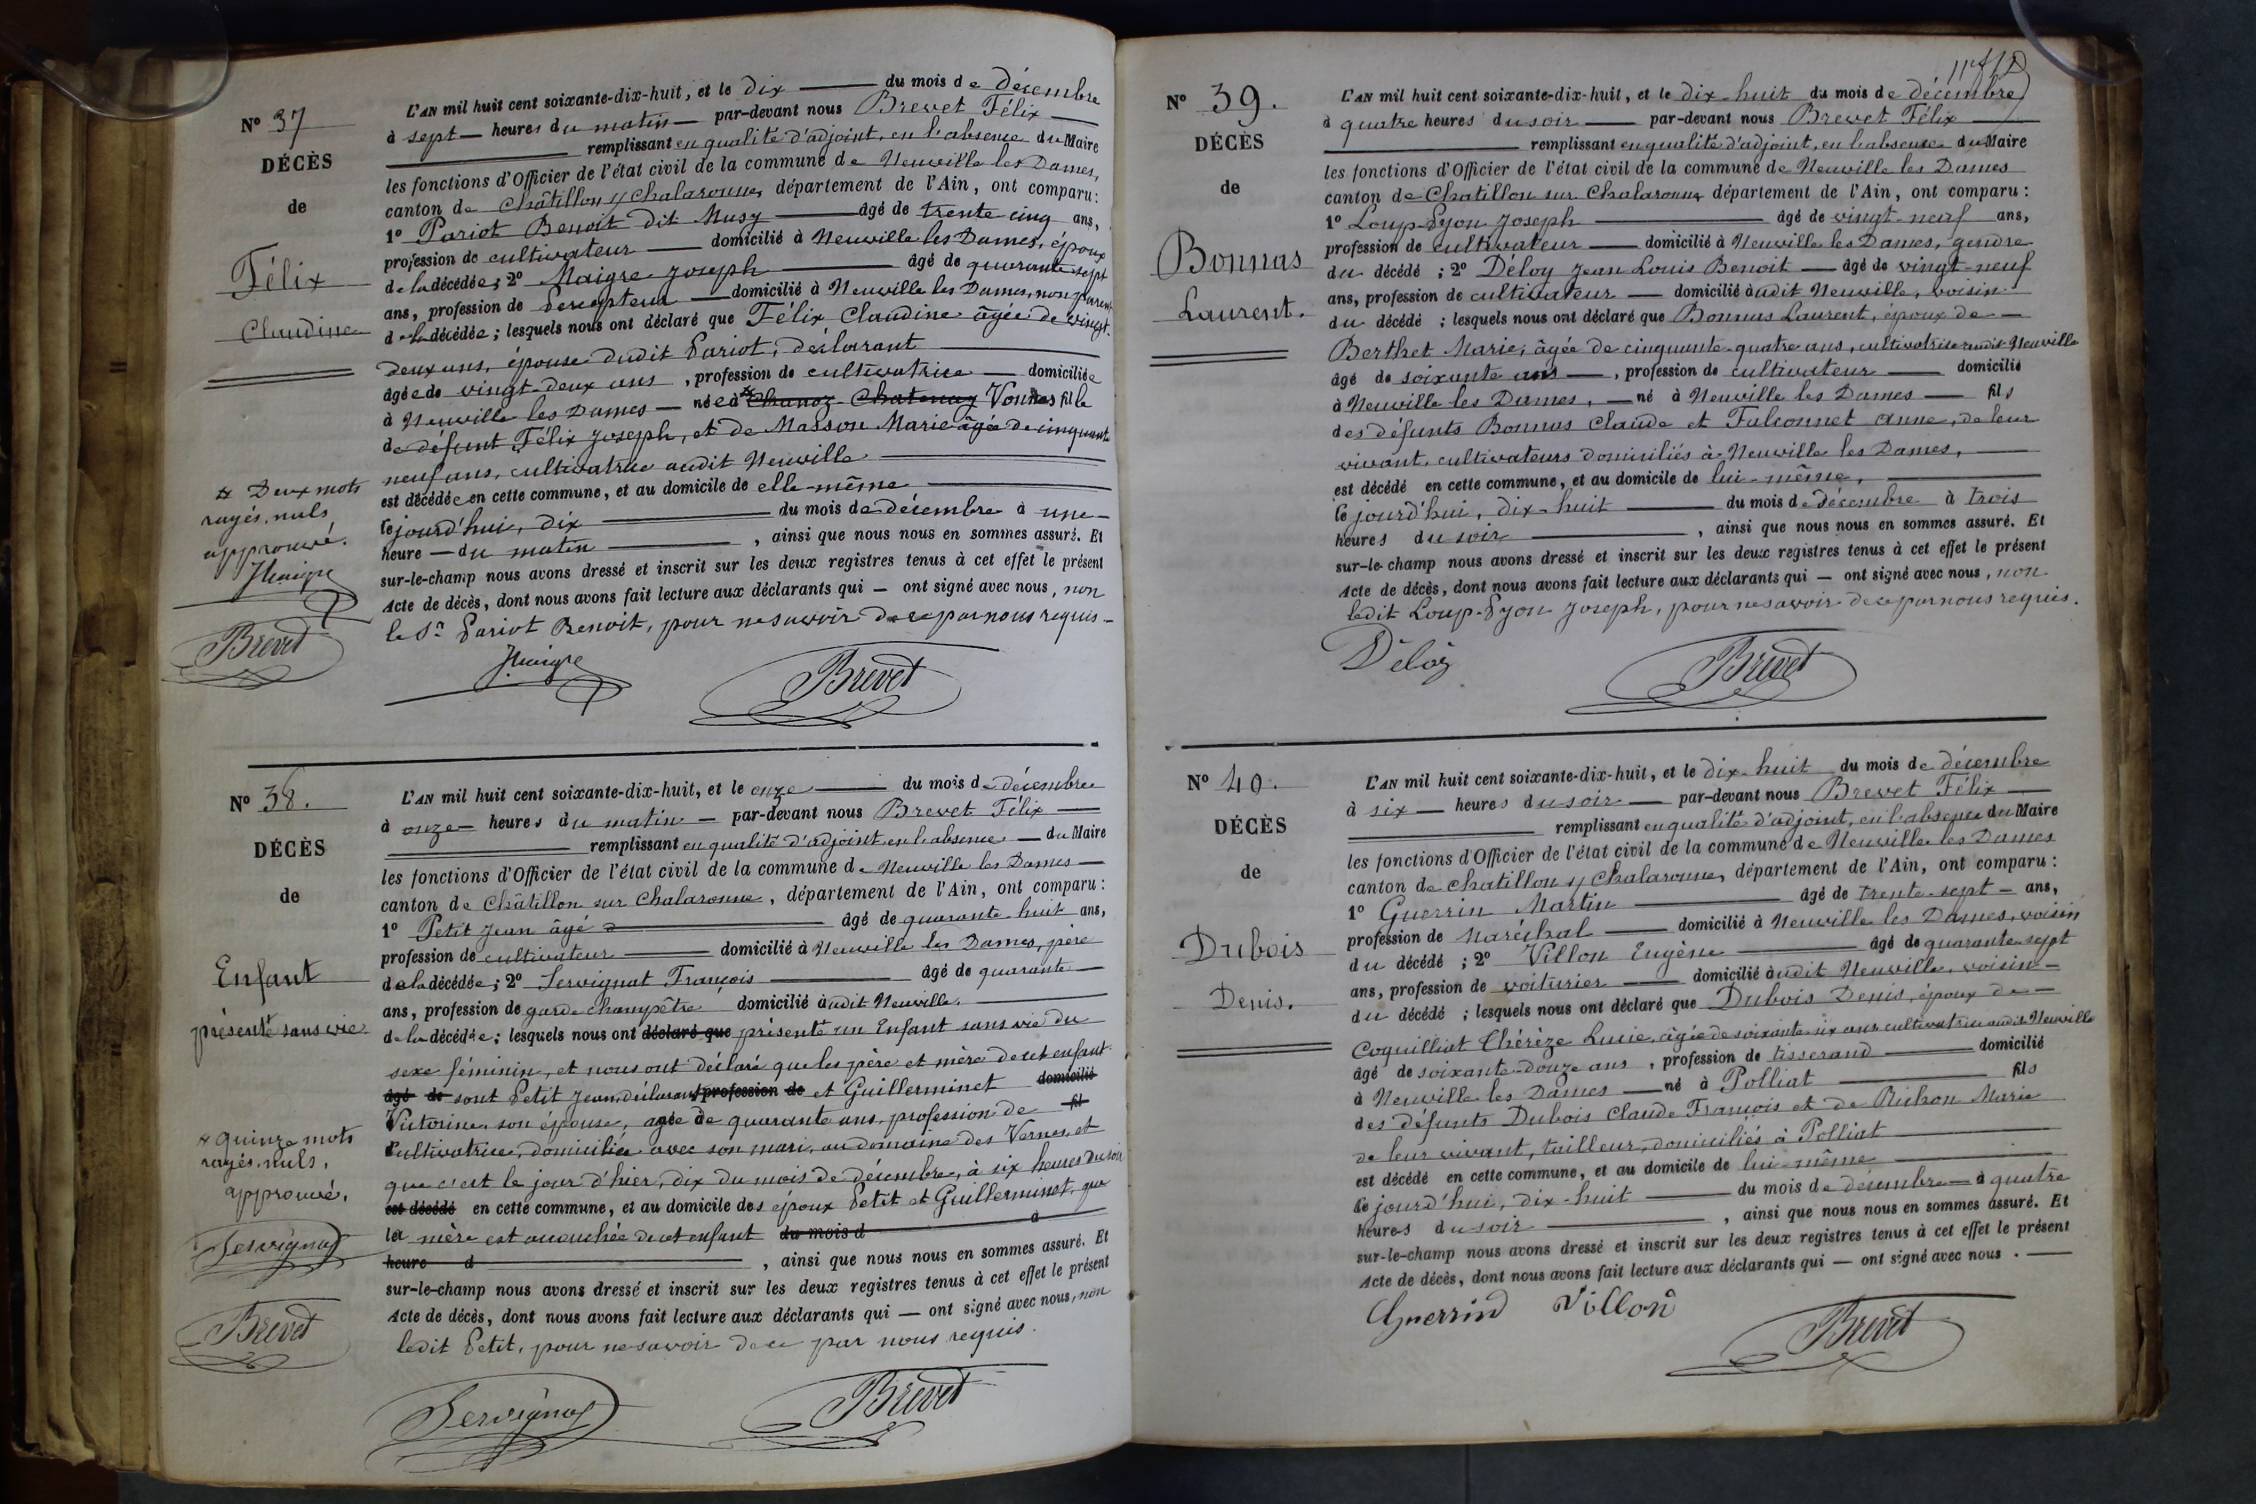 N° 37
DÉCÈS
de
Félix
Claudine
L'AN mil huit cent soixante-dix-huit, et le dix du mois de décembre
à sept heures du matin par-devant nous Brevet Félix
remplissant en qualité d'adjoint, en l'absence du Maire
les fonctions d'Officier de l'état civil de la commune de Neuville les Dames,
canton de Châtillon s/ Chalaronne, département de l'Ain, ont comparu :
1° Pariot Benoit dit Musy âgé de trente cinq ans,
profession de cultivateur domicilié à Neuville les Dames, époux
de la décédée ; 2° Maigre Joseph âgé de quarante sept
ans, profession de Percepteur domicilié à Neuville les Dames, non parent
de la décédée ; lesquels nous ont déclaré que Félix Claudine âgée de vingt-
deux ans, épouse dudit Pariot, déclarant
âgée de vingt-deux ans, profession de cultivatrice domiciliée
à Neuville les Dames née à Chanoz-Chatenay Vonnas fille
de défunt Félix Joseph, et de Masson Marie âgée de cinquante
neuf ans, cultivatrice audit Neuville
est décédée en cette commune, et au domicile de elle-même
le jourd'hui, dix du mois de décembre à une
heure du matin, ainsi que nous nous en sommes assuré. Et
sur-le-champ nous avons dressé et inscrit sur les deux registres tenus à cet effet le présent
Acte de décès, dont nous avons fait lecture aux déclarants qui — ont signé avec nous, non
le Sr Pariot Benoit, pour ne savoir de ce par nous requis
Deux mots
rayés nuls
approuvé.
JMaigre
Brevet
JMaigre
Brevet
N° 38.
DÉCÈS
de
Enfant
présenté sans vie
L'AN mil huit cent soixante-dix-huit, et le onze du mois de décembre
à onze heures du matin par-devant nous Brevet Félix
remplissant en qualité d'adjoint en l'absence du Maire
les fonctions d'Officier de l'état civil de la commune de Neuville les Dames
canton de Châtillon sur Chalaronne, département de l'Ain, ont comparu :
1° Petit Jean âgé âgé de quarante huit ans,
profession de cultivateur domicilié à Neuville les Dames, père
de la décédée ; 2° Servignat François âgé de quarante
ans, profession de garde champêtre domicilié audit Neuville.
de la décédée ; lesquels nous ont déclaré que présenté un Enfant sans vie du
sexe féminin, et nous ont déclaré que les père et mère de cet enfant
âgé de sont Petit Jean, déclarant profession de et Guillerminet domicilié
Victorine, son épouse, agée de quarante ans, profession de fil
Cultivatrice, domiciliée avec son mari, au domaine des Vernes, et
que c'est le jour d'hier, dix du mois de décembre, à six heures du soir
est décédé en cette commune, et au domicile des époux Petit et Guillerminet, que
la mère est accouchée de cet enfant du mois d à
heure d, ainsi que nous nous en sommes assuré. Et
sur-le-champ nous avons dressé et inscrit sur les deux registres tenus à cet effet le présent
Acte de décès, dont nous avons fait lecture aux déclarants qui — ont signé avec nous, non
ledit Petit, pour ne savoir de ce par nous requis.
quinze mots
rayés nuls,
approuvé.
Servignat
Brevet
Servignat
Brevet
N° 39.
DÉCÈS
de
Bonnas
Laurent.
L'AN mil huit cent soixante-dix-huit, et le dix-huit du mois de décembre
à quatre heures du soir par-devant nous Brevet Félix
remplissant en qualité d'adjoint, en l'absence du Maire
les fonctions d'Officier de l'état civil de la commune de Neuville les Dames
canton de Chatillon sur Chalaronne département de l'Ain, ont comparu :
1° Loup-Pyon Joseph âgé de vingt-neuf ans,
profession de cultivateur domicilié à Neuville les Dames, gendre
du décédé ; 2° Déloy Jean Louis Benoit âgé de vingt-neuf
ans, profession de cultivateur domicilié audit Neuville, voisin
du décédé ; lesquels nous ont déclaré que Bonnas Laurent, époux de
Berthet Marie, âgée de cinquante-quatre ans, cultivatrice audit Neuville
âgé de soixante ans, profession de cultivateur domicilié
à Neuville les Dames, né à Neuville les Dames fils
des défunts Bonnas Claude et Falconnet Anne, de leur
vivant, cultivateurs domiciliés à Neuville les Dames,
est décédé en cette commune, et au domicile de lui-même,
le jourd'hui, dix-huit du mois de décembre à trois
heures du soir, ainsi que nous nous en sommes assuré. Et
sur-le-champ nous avons dressé et inscrit sur les deux registres tenus à cet effet le présent
Acte de décès, dont nous avons fait lecture aux déclarants qui — ont signé avec nous, non
ledit Loup-Pyon Joseph, pour ne savoir de ce par nous requis.
Déloy
Brevet
N° 40.
DÉCÈS
de
Dubois
Denis.
L'AN mil huit cent soixante-dix-huit, et le dix-huit du mois de décembre
à six heures du soir par-devant nous Brevet Félix
remplissant en qualité d'adjoint, en l'absence du Maire
les fonctions d'Officier de l'état civil de la commune de Neuville les Dames
canton de Chatillon s/ Chalaronne, département de l'Ain, ont comparu :
1° Guerrin Martin âgé de trente-sept ans,
profession de Maréchal domicilié à Neuville les Dames, voisin
du décédé ; 2° Villon Eugène âgé de quarante-sept
ans, profession de voiturier domicilié audit Neuville, voisin
du décédé ; lesquels nous ont déclaré que Dubois Denis, époux de
Coquilliat Thérèze Lucie, âgée de soixante-six ans cultivatrice audit Neuville
âgé de soixante-douze ans, profession de tisserand domicilié
à Neuville les Dames né à Polliat fils
des défunts Dubois Claude François et de Richon Marie
de leur vivant, tailleur, domiciliés à Polliat
est décédé en cette commune, et au domicile de lui-même
le jourd'hui, dix-huit du mois de décembre à quatre
heures du soir, ainsi que nous nous en sommes assuré. Et
sur-le-champ nous avons dressé et inscrit sur les deux registres tenus à cet effet le présent
Acte de décès, dont nous avons fait lecture aux déclarants qui — ont signé avec nous.
Guerrin Villon
Brevet